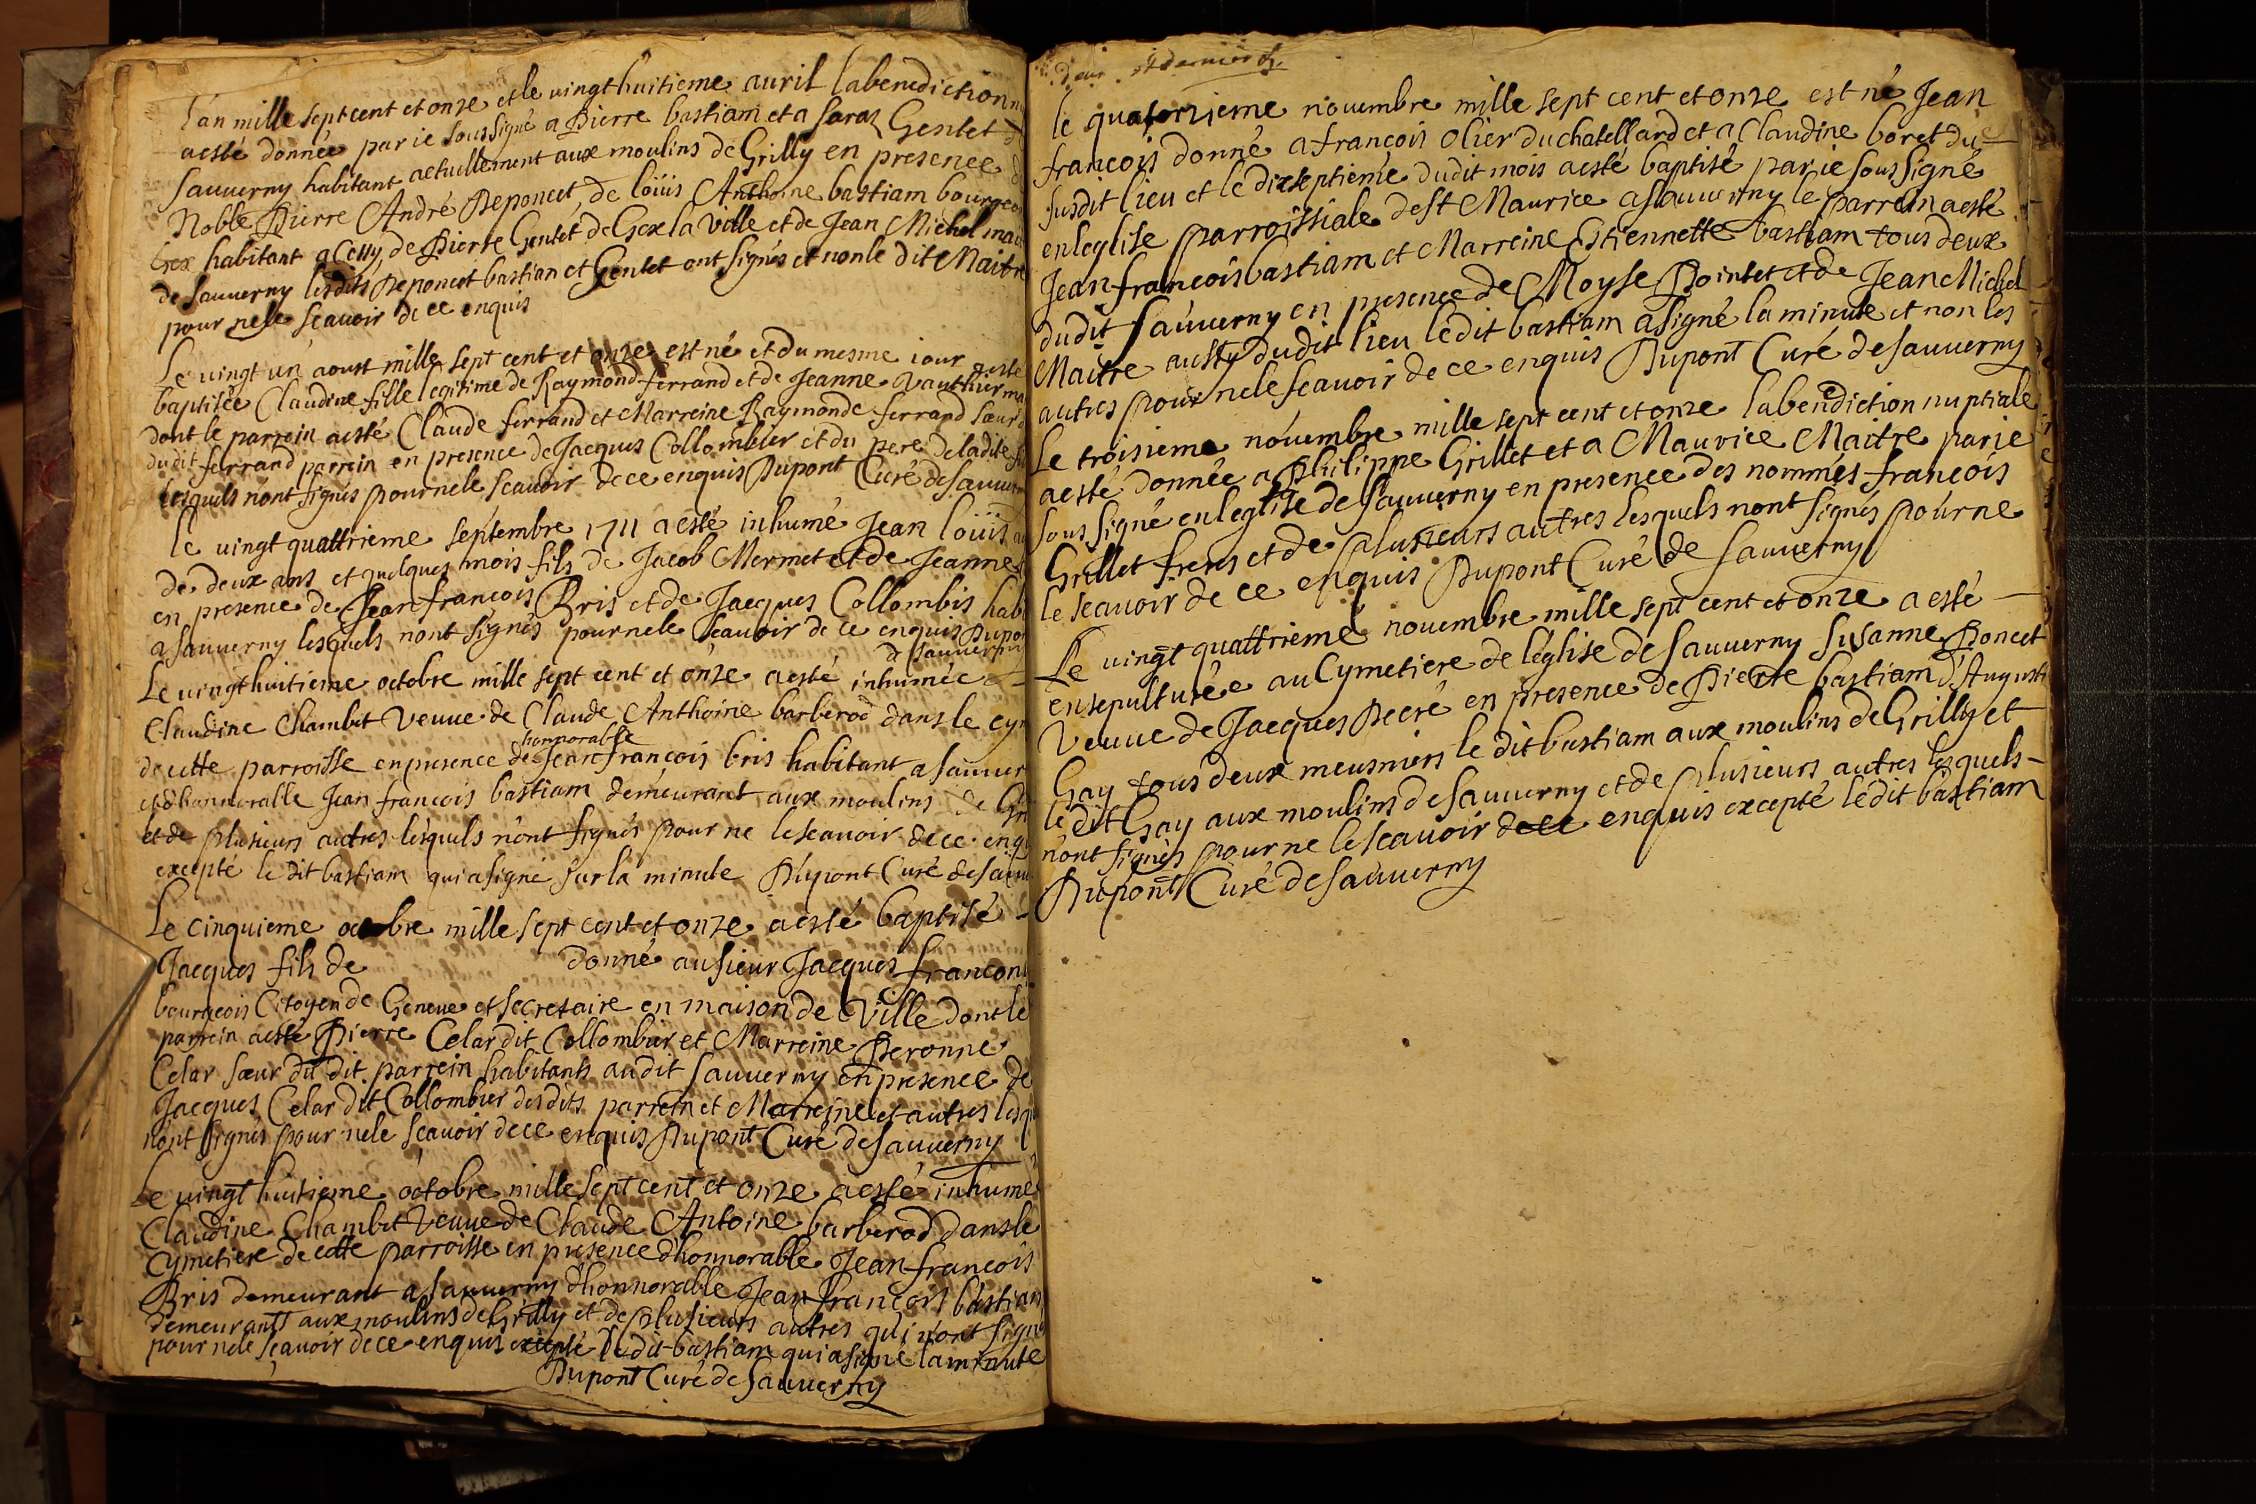 l'an mille sept cent et onze et le vingt huitieme avril la benediction
a esté donnée par ie sous signé a Pierre bastiam et a Saraz Gentet
Sauverny habitant actuellement aux moulins de Grilly en presence
Noble Pierre André Deponcet, de loüis Anthoine bastiam
Gex habitant a Cessy, de Pierre Gentet de Gex la Ville et de Jean Michel
de Sauverny lesdits Deponcet bastian et Gentet ont signés et non le dit Maitre
pour ne le scavoir de ce enquis
Le vingt un aoust mille sept cent et onze est né et du mesme iour a esté
baptisée Claudine fille legitime de Raymond ferrand et de Jeanne Vauthier
dont le parrein a esté Claude ferrand et Marreine Raymonde ferrand sœur
dudit ferrand parrein en presence de Jacques Collombier et du pere de ladite
lesquels n'ont signés pour ne le scavoir de ce enquis Dupont Curé de
le vingt quattrieme septembre 1711 a esté inhumé Jean loüis
de deux ans et quelques mois fils de Jacob Mermet et de Jeanne
en presence de Jean francois Bris et de Jacques Collombis
a Sauverny lesquels n'ont signés pour ne le scavoir de ce enquis
de Sauverny
Le vingt huitieme octobre mille sept cent et onze a esté inhumée
Claudine Chambet Veuve de Claude Anthoine barberod dans le
honnorable
de cette parroisse en presence de Jean francois bris habitant a
et d'honnorable Jean francois bastiam demeurant aux moulins de
et de plusieurs autres lesquels n'ont signés pour ne le scavoir de ce
excepté le dit bastiam qui a signé sur la minute Dupont Curé de
Le cinquieme octobre mille sept cent et onze a esté baptisé
Jacques fils de donné au sieur Jacques
bourgeois Citoyen de Geneve et secretaire en maison de Ville dont le
parrein a esté Pierre Celar dit Collombier et Marreine Peronne
Celar sœur du dit parrein habitants audit Sauverny en presence de
Jacques Celar dit Collombier desdits parrein et Marreine et autres
n'ont signés pour ne le scavoir de ce enquis Dupont Curé de Sauverny
Le vingt huitieme octobre mille sept cent et onze a esté inhumé
Claudine Chambet Veuve de Claude Antoine barberod dans le
Cymetiere de cette parroisse en presence d'honnorable Jean francois
Bris demeurant a Sauverny d'honnorable Jean francois bastiam
demeurants aux moulins de Grilly et de plusieurs autres qui n'ont signé
pour ne le scavoir de ce enquis excepté le dit bastiam qui a signé la minute
Dupont Curé de Sauverny
le quatorzieme novembre mille sept cent et onze est né Jean
francois donné a francois olier du chatellard et a Claudine boret du
susdit lieu et le dixseptieme dudit mois a esté baptisé par ie sous signé
en leglise parroissiale de St Maurice a Sauverny le parrein a esté
Jean francois bastiam et Marreine Estiennette bastiam tous deux
dudit Sauverny en presence de Moyse Pointet et de Jean Michel
Maitre aussy dudit lieu le dit bastiam a signé la minute et non les
autres pour ne le scavoir de ce enquis Dupont Curé de Sauverny
Le troisieme novembre mille sept cent et onze la benediction nuptiale
a esté donnée a Philippe Grillet et a Maurice Maitre par ie
sous signé en leglise de Sauverny en presence des nommés francois
Grillet frers et de plusieurs autres lesquels n'ont signés pour ne
le scavoir de ce enquis Dupont Curé de Sauverny
Le vingt quattrieme novembre mille sept cent et onze a esté
ensepulturée au Cymetiere de l'église de Sauverny Susanne Poncet
Veuve de Jacques Decré en presence de Pierre bastiam
Gay tous deux meusniers le dit bastiam aux moulins de Grilly et
le dit Gay aux moulins de Sauverny et de plusieurs autres lesquels
n'ont signés pour ne le scavoir de ce enquis excepté le dit bastiam
Dupont Curé de Sauverny